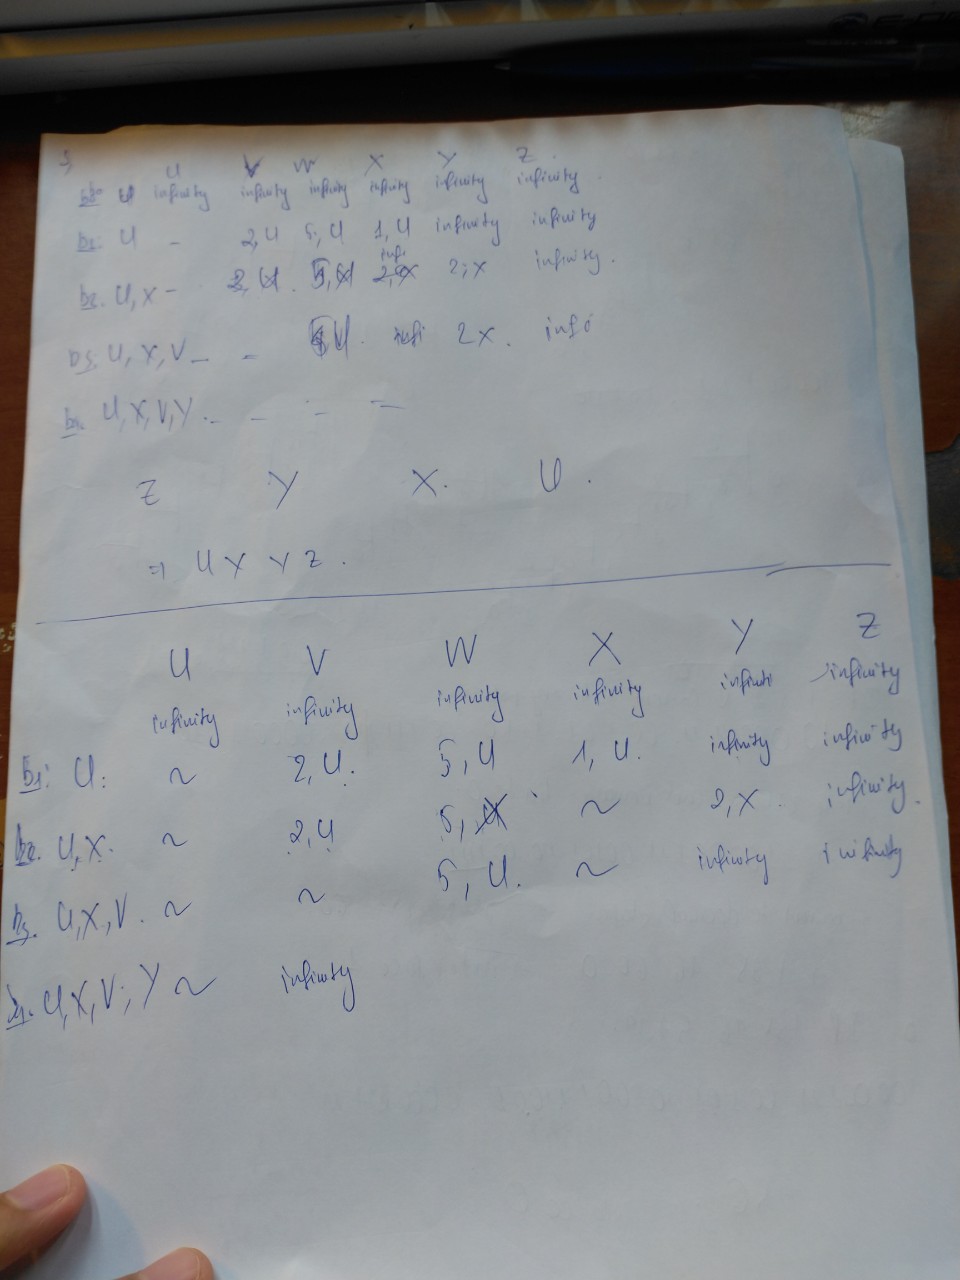 U V W X Y Z
U infinity infinity infinity infinity infinity infinity
b1: U - 2,U 5,U 1,U infinity infinity
infi
b2. U,X - 2,U. 5,U 2,X 2,X infinity.
b3. U, X, V - - U. infi 2X. info
b4. U,X,V,Y. - - - -
Z Y X. U.
=> U X Y Z.
U V W X Y Z
infinity infinity infinity infinity infiniti infinity
b1: U: ~ 2,U. 5,U 1,U. infinity infinity
b2. U,X. ~ 2,U 5, ~ 2,X. infinity.
b3. U,X,V. ~ ~ 5,U. ~ infinity infinity
b4. U,X,V,Y ~ infinity